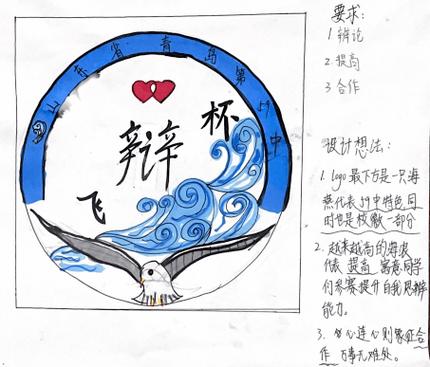 山东省青岛第59中
飞辩杯
要求:
1 辨论
2 提高
3 合作
设计想法:
1. logo最下方是一只海
燕代表59中特色同
时也是校徽一部分
2. 越来越高的海浪
代表提高 寓意同学
们参赛提升自我思辨
能力。
3. 心连心则象征合
作 万事无难处。